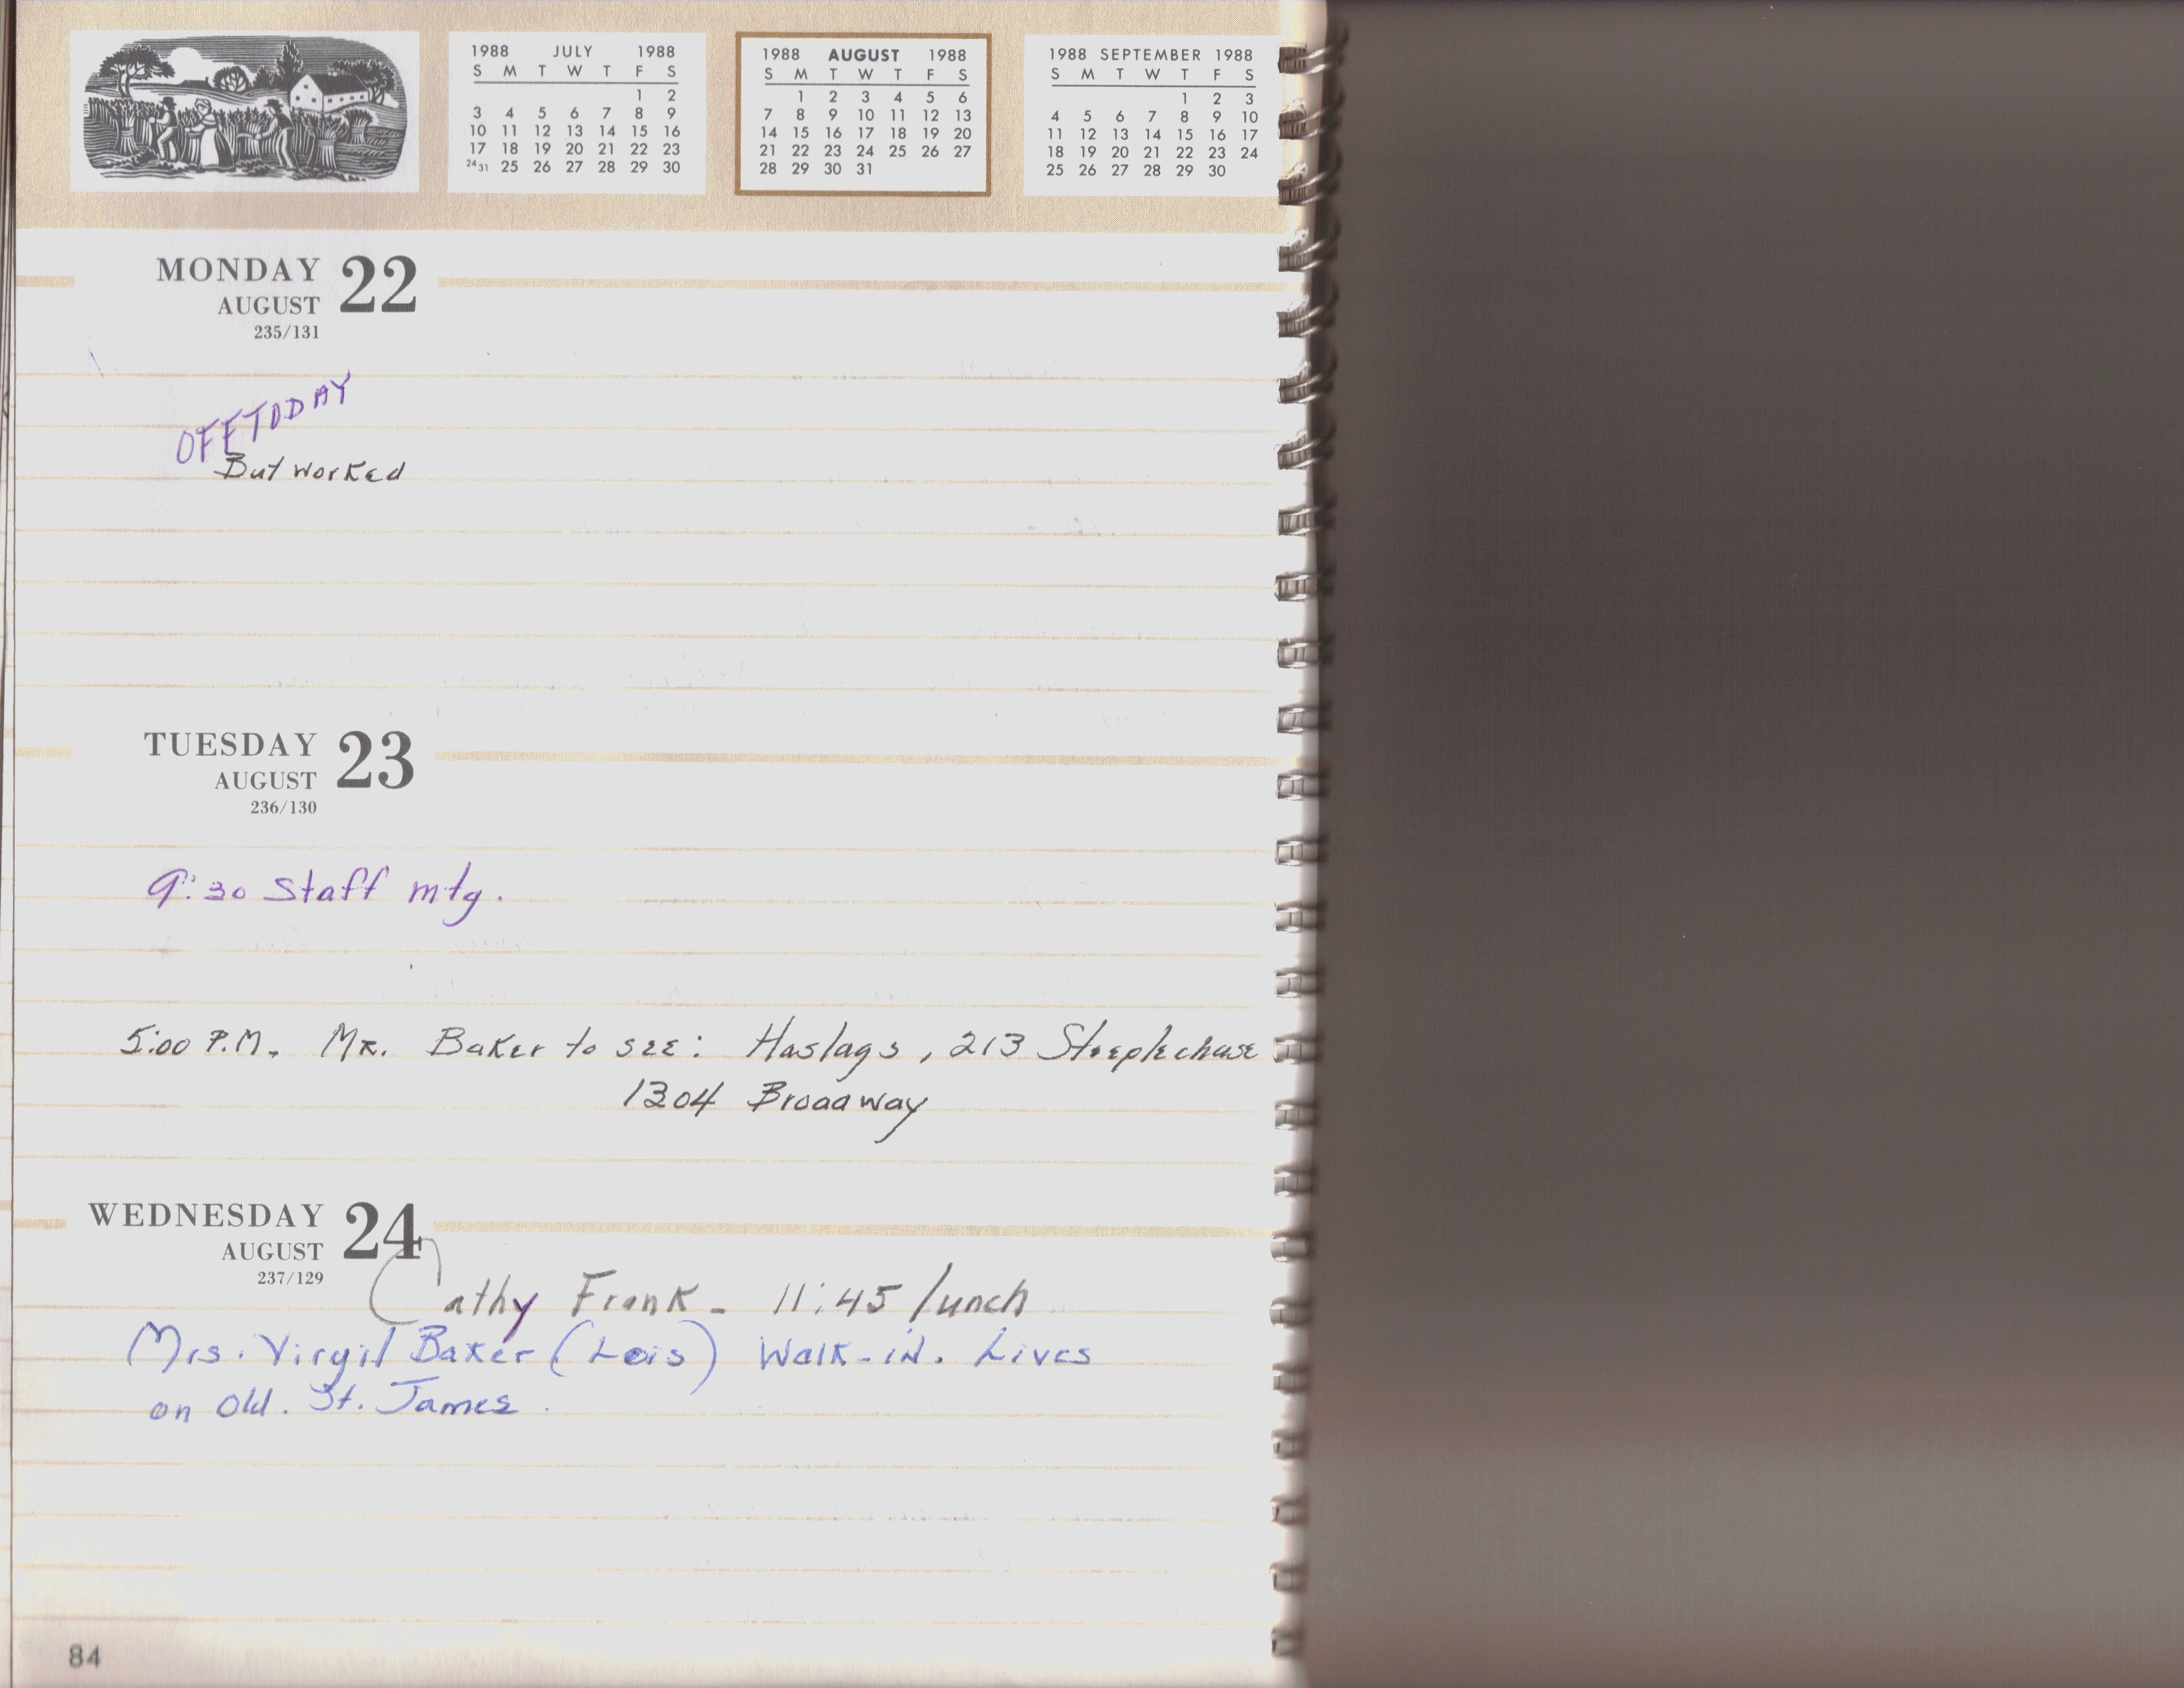 1988 JULY 1988
S M T W T F S
1 2
3 4 5 6 7 8 9
10 11 12 13 14 15 16
17 18 19 20 21 22 23
24 31 25 26 27 28 29 30
1988 AUGUST 1988
S M T W T F S
1 2 3 4 5 6
7 8 9 10 11 12 13
14 15 16 17 18 19 20
21 22 23 24 25 26 27
28 29 30 31
1988 SEPTEMBER 1988
S M T W T F S
1 2 3
4 5 6 7 8 9 10
11 12 13 14 15 16 17
18 19 20 21 22 23 24
25 26 27 28 29 30
MONDAY 22
AUGUST
235/131
OFF TODAY
But worked
TUESDAY 23
AUGUST
236/130
9:30 Staff mtg.
5:00 P.M. Mr. Baker to see: Haslags, 213 Steeplechase
1304 Broadway
WEDNESDAY 24
AUGUST
237/129
Cathy Frank - 11:45 lunch
Mrs. Virgil Baker (Lois) Walk-in. Lives
on Old. St. James.
84